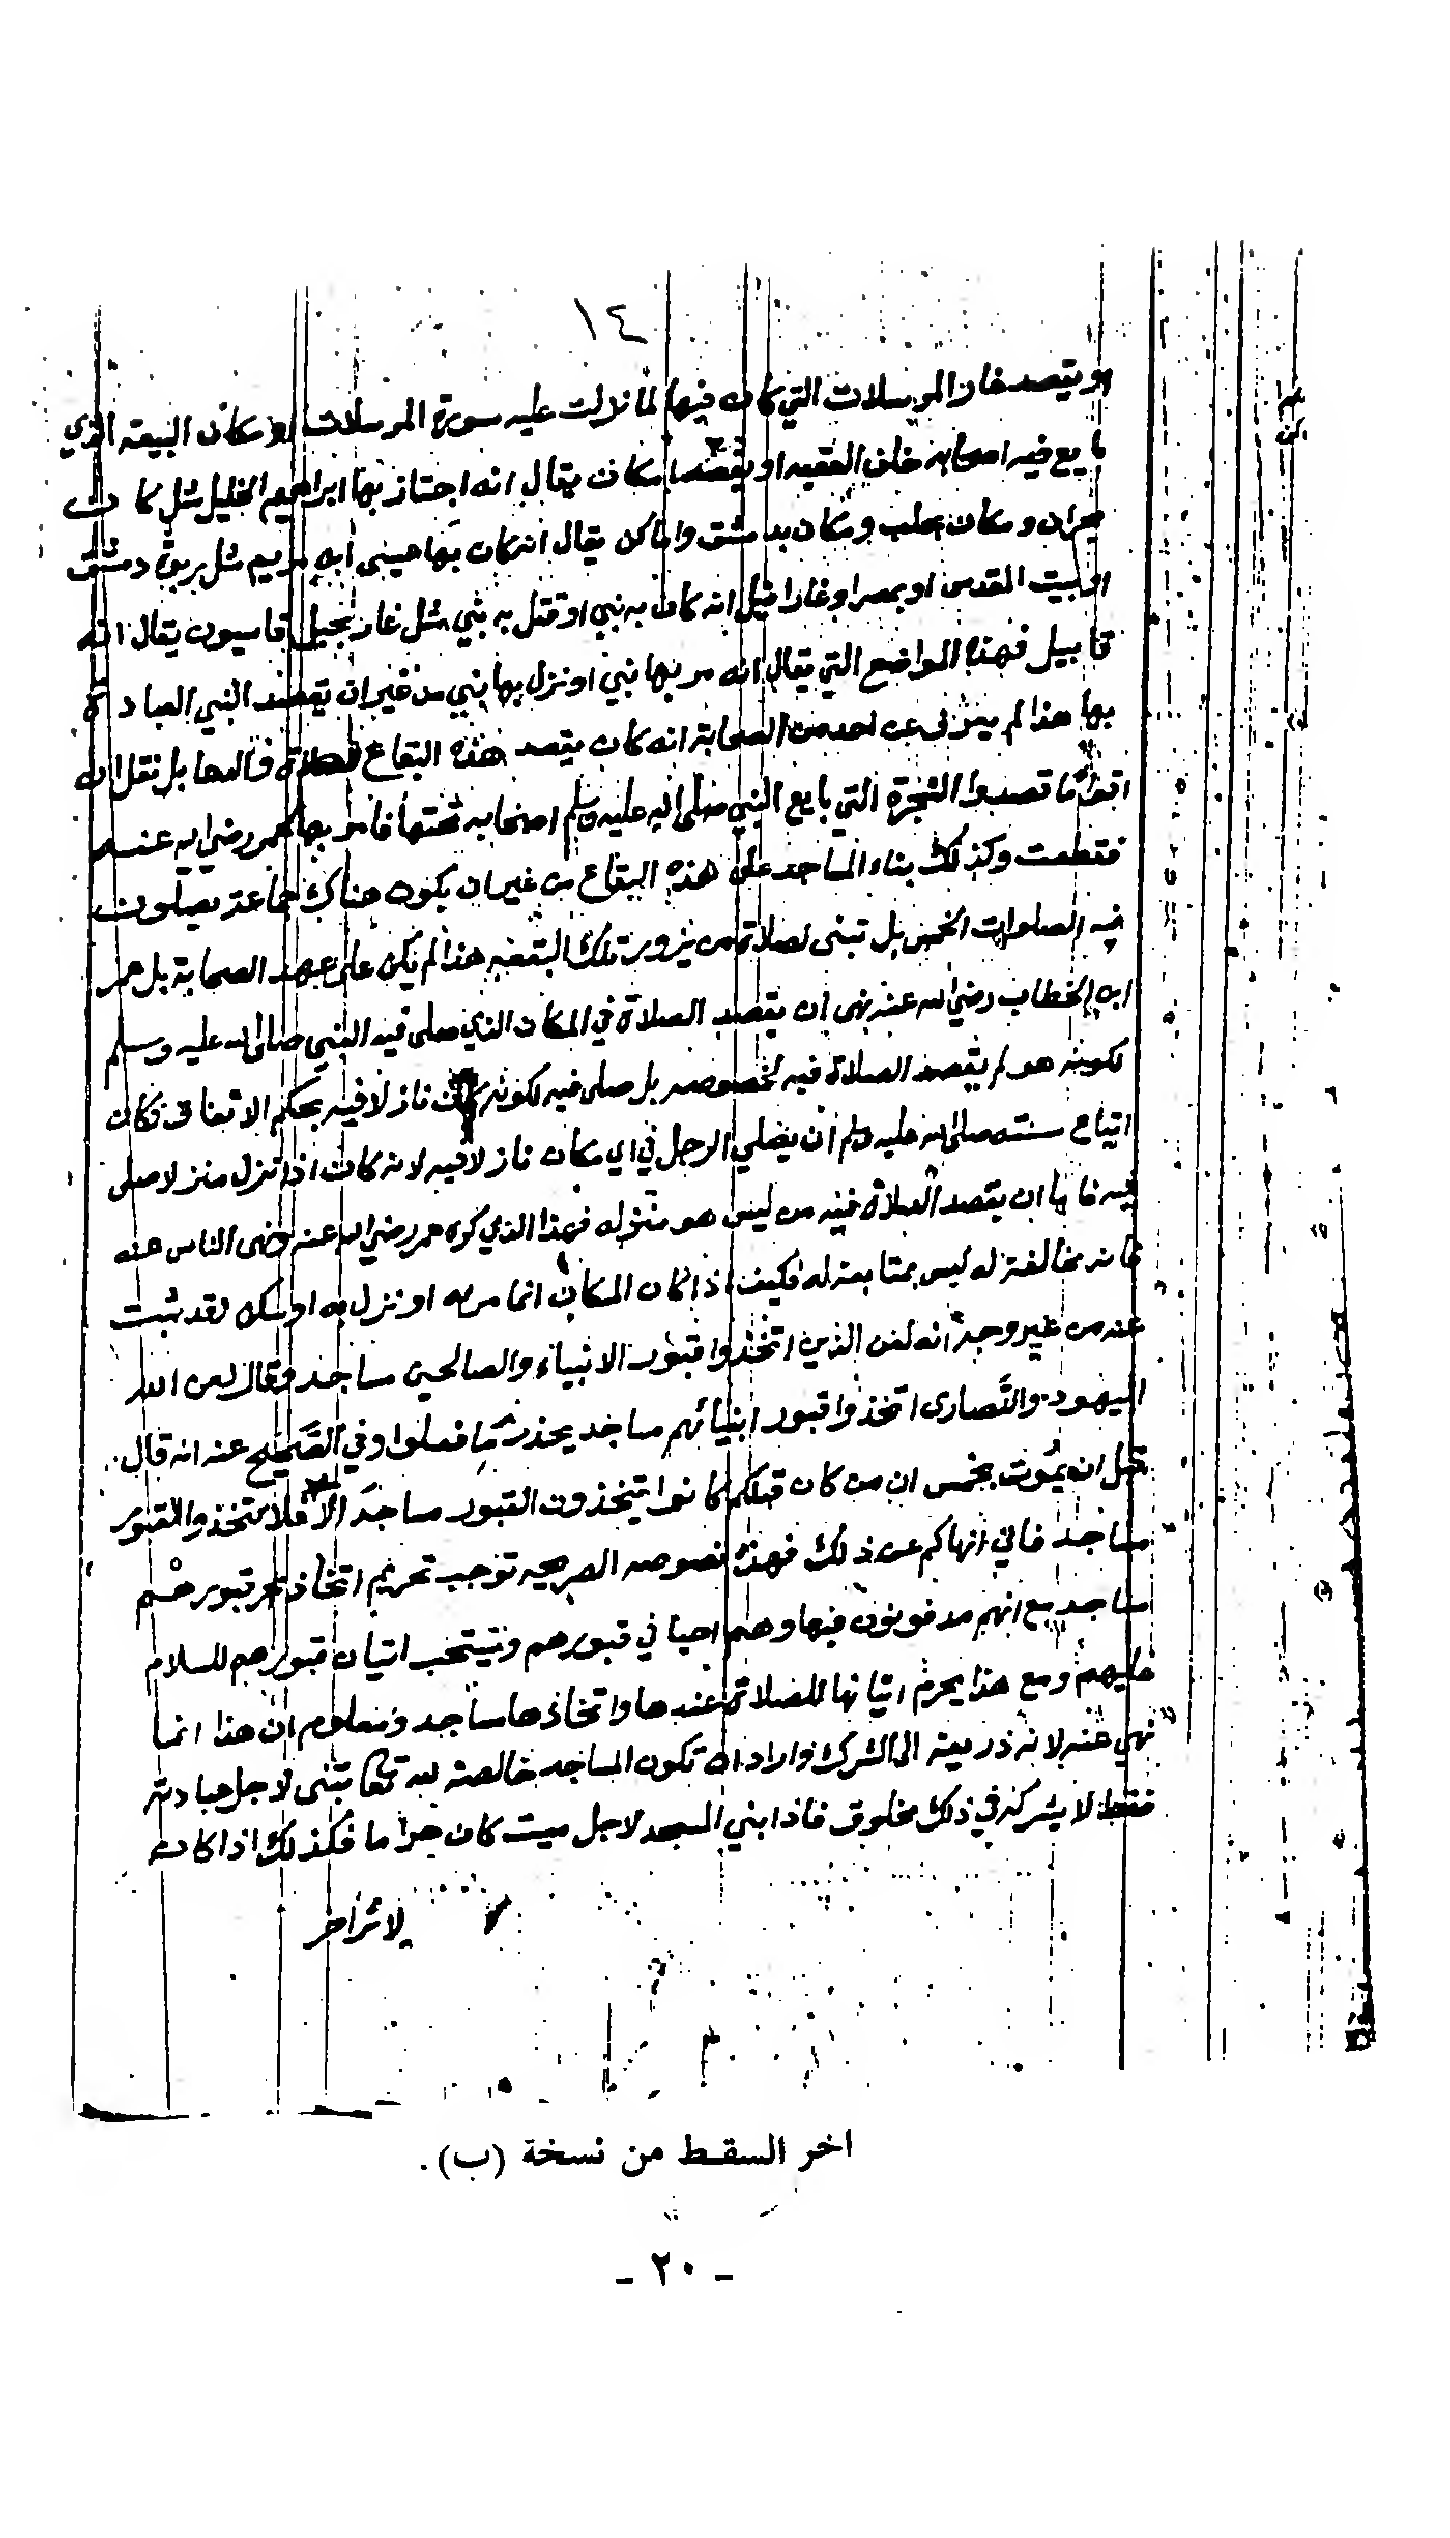 ١٤
او يقصد غار المرسلات التي كان فيها لما نزلت عليه سورة المرسلات او مكان البيعه الذي
بايع فيه اصحابه خلف العقبه او يقصد مكان يقال انه اجتاز بها ابراهيم الخليل مثل كا ن
بحران ومكان بحلب ومكان بدمشق واماكن يقال انه كان بها عيسى ابن مريم مثل ربوة دمشق
او بيت المقدس او بمصر او غارا قيل انه كان به نبي او قتل به نبي مثل غار بجبل قاسيون يقال انه
قابيل فهذه المواضع التي يقال انه مر بها نبي او نزل بها نبي من غير ان يقصد النبي العبادة
بها هذا لم ينقل عن احد من الصحابة انه كان يقصد هذه البقاع للصلاة والدعا بل نقل ان
اقواما قصدوا الشجرة التي بايع النبي صلى الله عليه وسلم اصحابه تحتها فامر بها عمر رضي الله عنه
فقطعت وكذلك بناء المساجد على هذه البقاع من غير ان يكون هناك جماعة يصلون
فيه الصلوات الخمس بل تبنى لصلاة من يزور تلك البقعه هذا لم يكن على عهد الصحابة بل عمر
ابن الخطاب رضي الله عنه نهى ان يقصد الصلاة في المكان الذي صلى فيه النبي صلى الله عليه وسلم
لكونه هو لم يقصد الصلاة فيه لخصوصه بل صلى فيه لكونه كان نازلا فيه بحكم الاتفاق فكان
اتباع سنته صلى الله عليه وسلم ان يصلي الرجل في اي مكان نازلا فيه لانه كان اذا نزل منزلا صلى
فيه فاما ان يقصد الصلاة فيه من ليس هو منزله فهذا الذي كره عمر رضي الله عنه ونهى الناس عنه
فانه مخالفة له ليس بمتابعة له فكيف اذا كان المكان انما مر به او نزل به او سكن لقد ثبت
عنه من غير وجه انه لعن الذين اتخذوا قبور الانبياء والصالحين مساجد وقال لعن الله
اليهود والنصارى اتخذوا قبور انبيائهم مساجد يحذر ما فعلوا وفي الصحيح عنه انه قال
قبل ان يموت بخمس ان من كان قبلكم كانوا يتخذون القبور مساجد الا فلا تتخذوا القبور
مساجد فاني انهاكم عن ذلك فهذه نصوصه الصريحه توجب تحريم اتخاذ قبورهم
مساجد مع انهم مدفونون فيها وهم احيا في قبورهم ويستحب اتيان قبورهم للسلام
عليهم ومع هذا يحرم اتيانها للصلاة عندها واتخاذها مساجد ومعلوم ان هذا انما
نهي عنه لانه ذريعة الى الشرك واراد ان تكون المساجد خالصة لله تعالى تبنى لاجل عبادته
فقط لا يشركه في ذلك مخلوق فاذا بني المسجد لاجل ميت كان حراما فكذلك اذا كان
لاثر اخر
اخر السقط من نسخة (ب).
- ٢٠ -